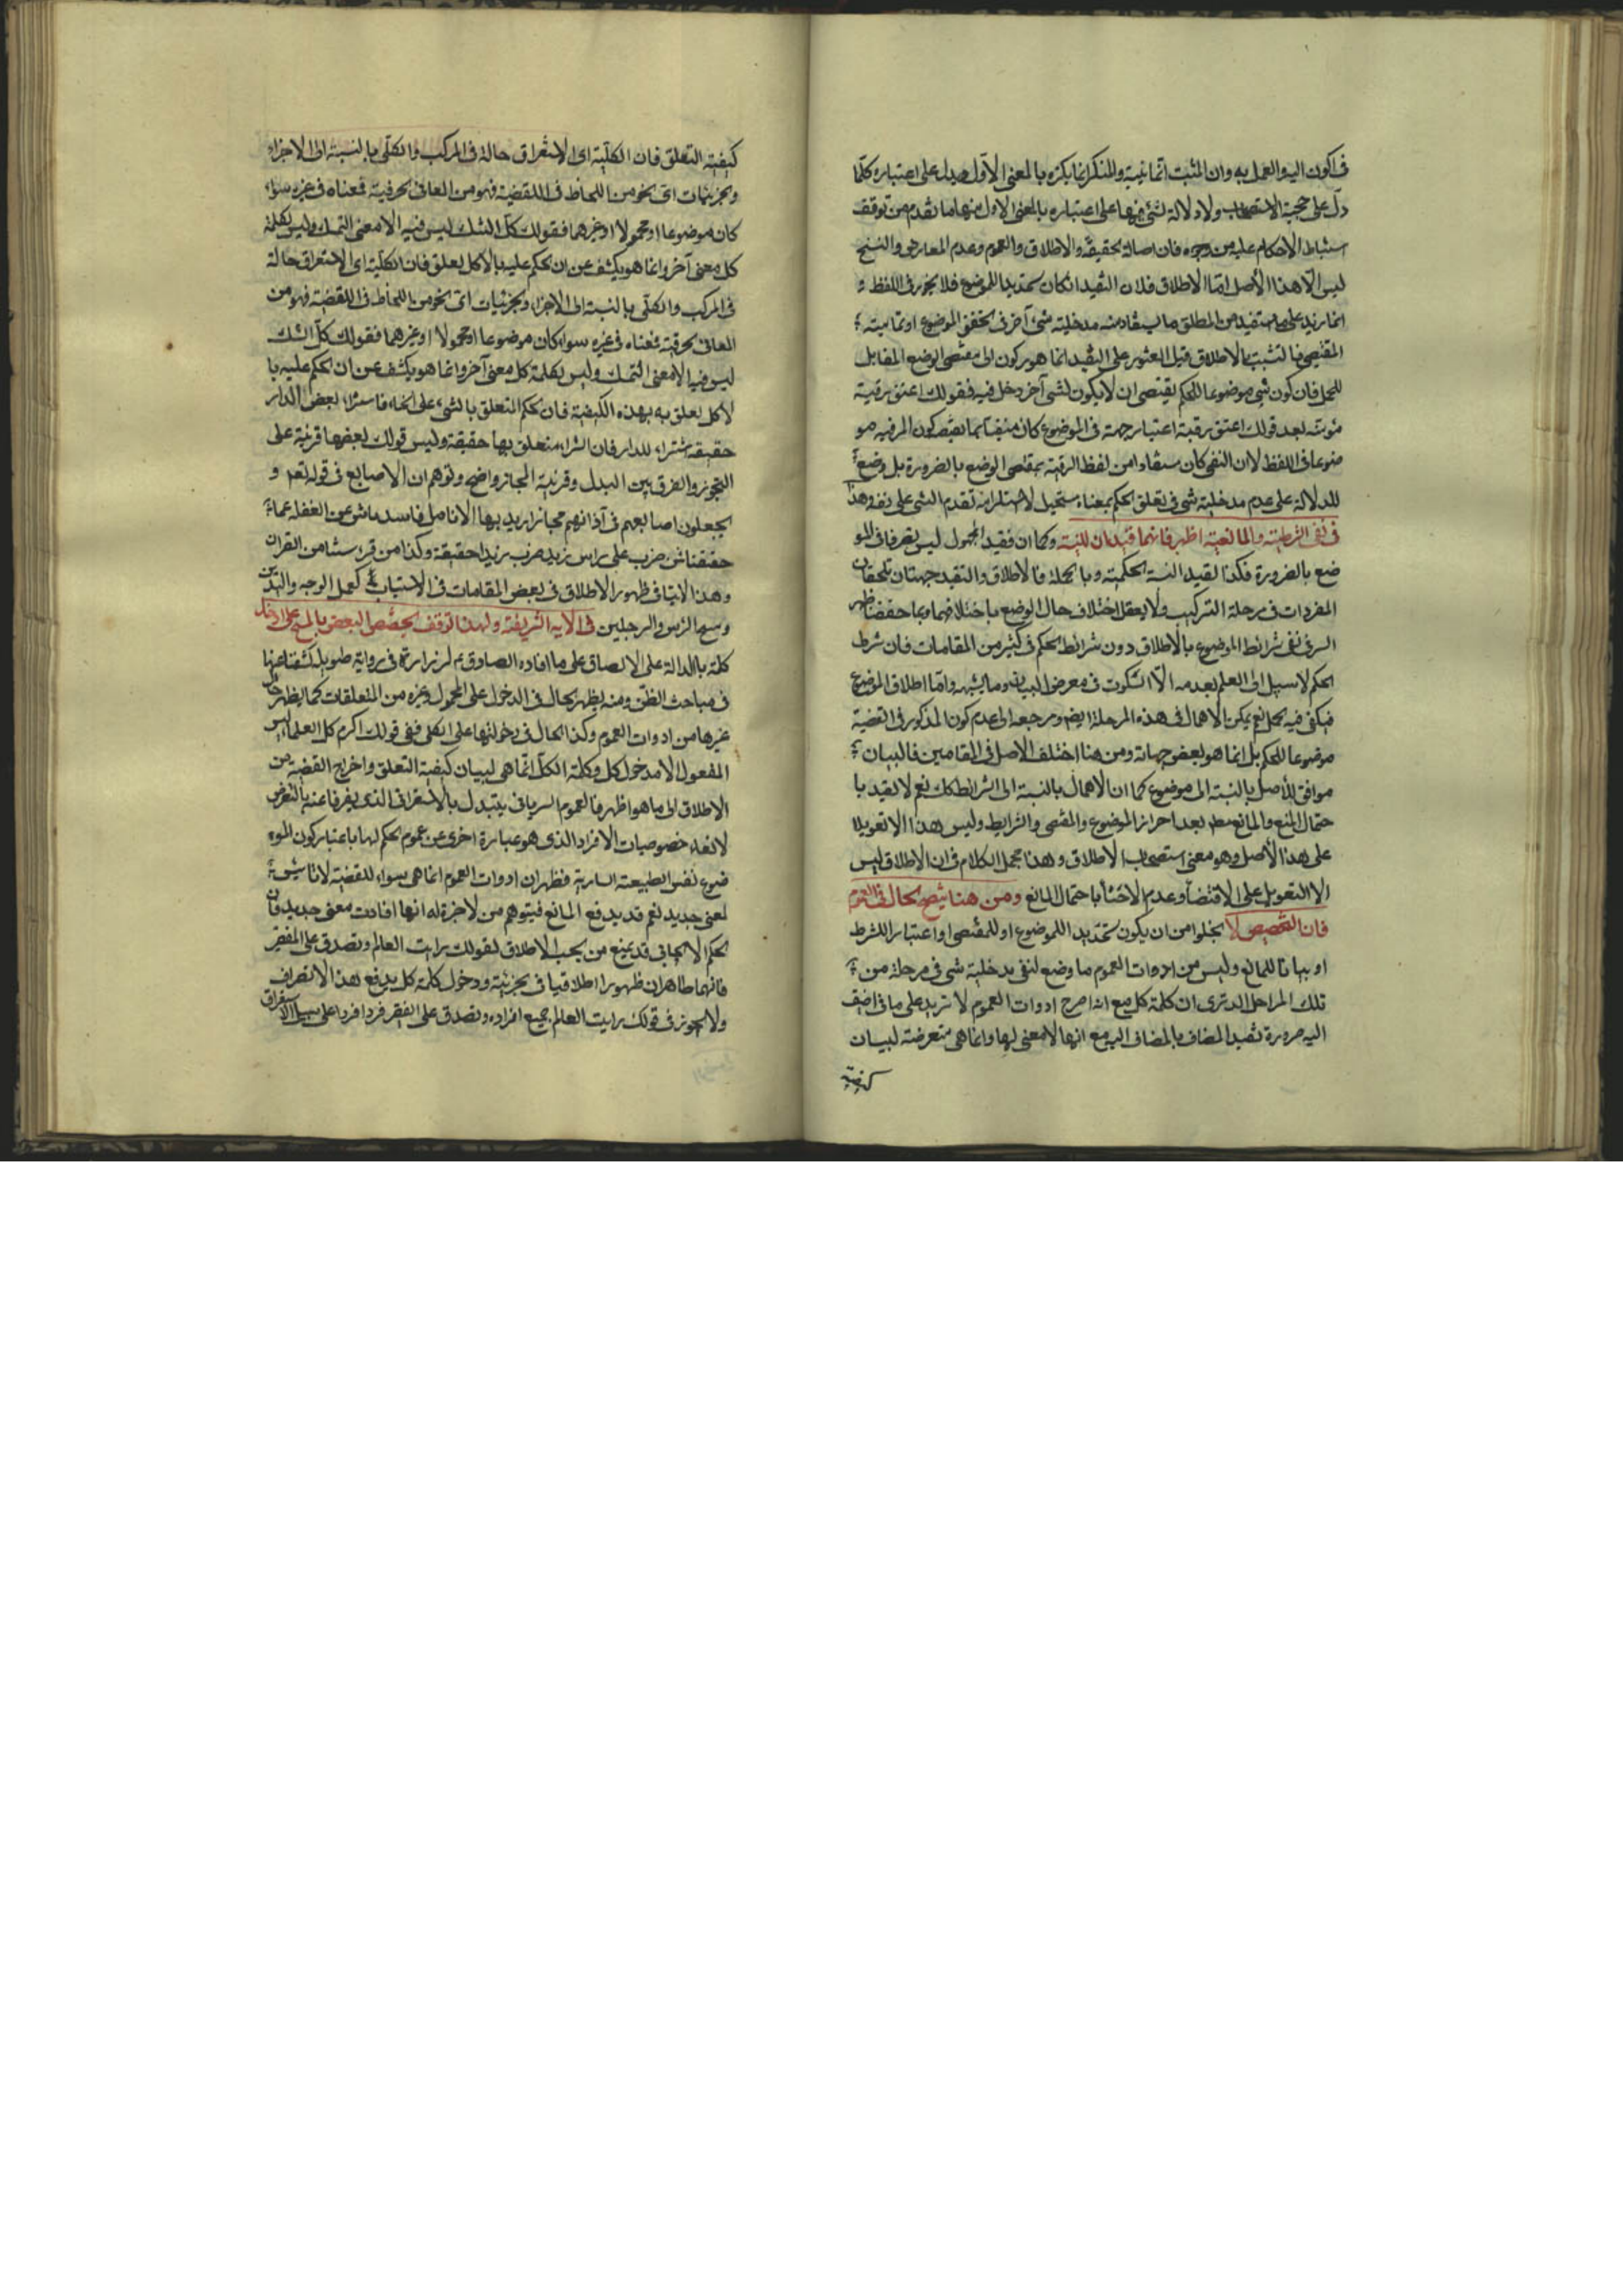 في الكون اليه والعمل به وان المثبت انما يثبته والمنكر انما ينكره بالمعنى الاول ويدل على اعتباره كلما
دل على حجية الاستصحاب ولا دلالة لشئ منها على اعتباره بالمعنى الاول منها ما تقدم من توقف
استنباط الاحكام عليه من وجوه فان اصالة الحقيقة والاطلاق والعموم وعدم المعارض والنسخ
ليس الا هذا الأصل امّا الاطلاق فلان التقييد ان كان تحديدا للموضوع فلا يجوز في اللفظ و
انما يزيد على ما استفيد من المطلق ما يستفاد منه مدخلية شئ آخر في تحقق الموضوع او تمامية
المقتضي فالتشبث بالاطلاق قبل العثور على التقييد انما هو ركون الى مقتضى الوضع المقابل
للحمل فان كون شئ موضوعا للحكم يقتضي ان لا يكون لشئ آخر دخل فيه فقولك اعتق رقبة
مؤمنة بعد قولك اعتق رقبة اعتبار جهة في الموضوع كان منفيا بما يقتضيه كون الرقبة مو
ضوعا في اللفظ لا ان النفي كان مستفادا من لفظ الرقبة بمقتضى الوضع بالضرورة بل وضع
للدلالة على عدم مدخلية شئ في تعلق الحكم بمعناه مستحيل لاستلزامه تقدم الشئ على نفسه وهذا
في نفي الشرطية والمانعية اظهر فانهما قيدان للنسبة وكما ان تقييد المحمول ليس تصرفا في المو
ضع بالضرورة فكذا تقييد النسبة الحكمية وبالجملة فالاطلاق والتقييد جهتان تلحقان
المفردات في مرحلة التركيب ولا يعقل اختلاف حال الوضع باختلافهما وبما حققنا ظهر
السر في نفي شرائط الموضوع بالاطلاق دون شرائط الحكم في كثير من المقامات فان شرط
الحكم لا سبيل الى العلم بعدمه الّا السكوت في معرض البيان وما يشبهه وامّا اطلاق الموضوع
فيكفي فيه الحمل نعم يمكن الاهمال في هذه المرحلة ايضا ومرجعه الى عدم كون المذكور في القضية
موضوعا للحكم بل انما هو بعض جهاته ومن هنا اختلف الاصل في المقامين فالبيان
موافق للأصل بالنسبة الى موضوع كما ان الاهمال بالنسبة الى الشرائط كك نعم لا تقييد با
حتمال المنع والمانع مط بعد احراز الموضوع والمقتضى والشرايط وليس هذا الا تعويلا
على هذا الأصل وهو معنى استصحاب الاطلاق وهذا مجمل الكلام في ان الاطلاق ليس
الا التعويل على الاقتضاء وعدم الاعتناء باحتمال المانع ومن هنا يتضح الحال في العموم
فان التخصيص لا يخلوا من ان يكون تحديدا للموضوع او للمقتضى او اعتبارا للشرط
او بيانا للمانع وليس من ادوات العموم ما وضع لنفي مدخلية شئ في مرحلة من
تلك المراحل الا ترى ان كلمة كل مع انه اصرح ادوات العموم لا تزيد على ما في اضيف
اليه ضرورة تقييد المضاف بالمضاف اليه مع انها لا معنى لها وانما هي متعرضة لبيان
كيفية
كيفية التعلق فان الكلّية اى الاستغراق حالة في المركب والكلّي بالنسبة الى الاجزاء
والجزئيات اى نحو من اللحاظ في القضية فهو من المعاني الحرفية فمعناه في غيره سواء
كان موضوعا او محمولا او غيرهما فقولك كل السمك ليس فيه الا معنى السمك وليس لكلمة
كل معنى آخر وانما هو يكشف عن ان الحكم عليه بالاكل تعلق فان الكلية اى الاستغراق حالة
في المركب والكلّي بالنسبة الى الاجزاء والجزئيات اى نحو من اللحاظ في القضية فهو من
المعاني الحرفية فمعناه في غيره سواء كان موضوعا او محمولا او غيرهما فقولك كل السمك
ليس فيه الا معنى السمك وليس لكلمة كل معنى آخر وانما هو يكشف عن ان الحكم عليه با
لاكل تعلق به بهذه الكيفية فان الحكم المتعلق بالشئ على انحاء فاشتراء بعض الدار
حقيقة اشتراء للدار فان الشراء متعلق بها حقيقة وليس قولك بعضها قرينة على
التجوز والفرق بين البدل وقرينة المجاز واضح وتوهم ان الاصابع في قوله تعم و
يجعلون اصابعهم في آذانهم مجاز اريد بها الانامل فاسد ناش عن الغفلة عما
حققنا فمن ضرب على راس زيد ضرب زيدا حقيقة وكذا من قرء شيئا من القران
وهذا لا ينافي ظهور الاطلاق في بعض المقامات في الاستيعاب كغسل الوجه واليدين
ومسح الرأس والرجلين في الآية الشريفة ولهذا توقف تخصيص البعض بالمسح على ادخال
كلمة با الدالة على الالصاق على ما افاده الصادق ع لزرارة في رواية طويلة كشفنا عنها
في مباحث الظن ومنه يظهر الحال في الدخول على المحمول وغيره من المتعلقات كما يظهر حال
غيرها من ادوات العموم وكذا الحال في دخولها على الكلي ففي قولك اكرم كل العلماء ليس
المفعول الا مدخول كل وكلمة الكلّ انما هي لبيان كيفية التعلق واخراج القضية من
الاطلاق الى ما هو اظهر فالعموم السرياني يتبدل بالاستغراقي الذي يفرقا عنه بالتعرض
لالغاء خصوصيات الافراد الذي هو عبارة اخرى عن عموم الحكم لها باعتبار كون المو
ضوع نفس الطبيعة السارية فظهر ان ادوات العموم انما هي سواء للقضية لا تاسيس
لمعنى جديد نعم قد يدفع المانع فيتوهم من لا خبرة له انها افادت معنى جديد فان
الحكم الايجابي قد يمنع من الاطلاق لقولك رايت العالم وتصدق على الفقير
فانهما ظاهران ظهورا اطلاقيا في الجزئية ودخول كلمة كل يدفع هذا الانصراف
ولا يجوز في قولك رايت العالم جميع افراده وتصدق على الفقير فردا فردا على سبيل الاستغراق